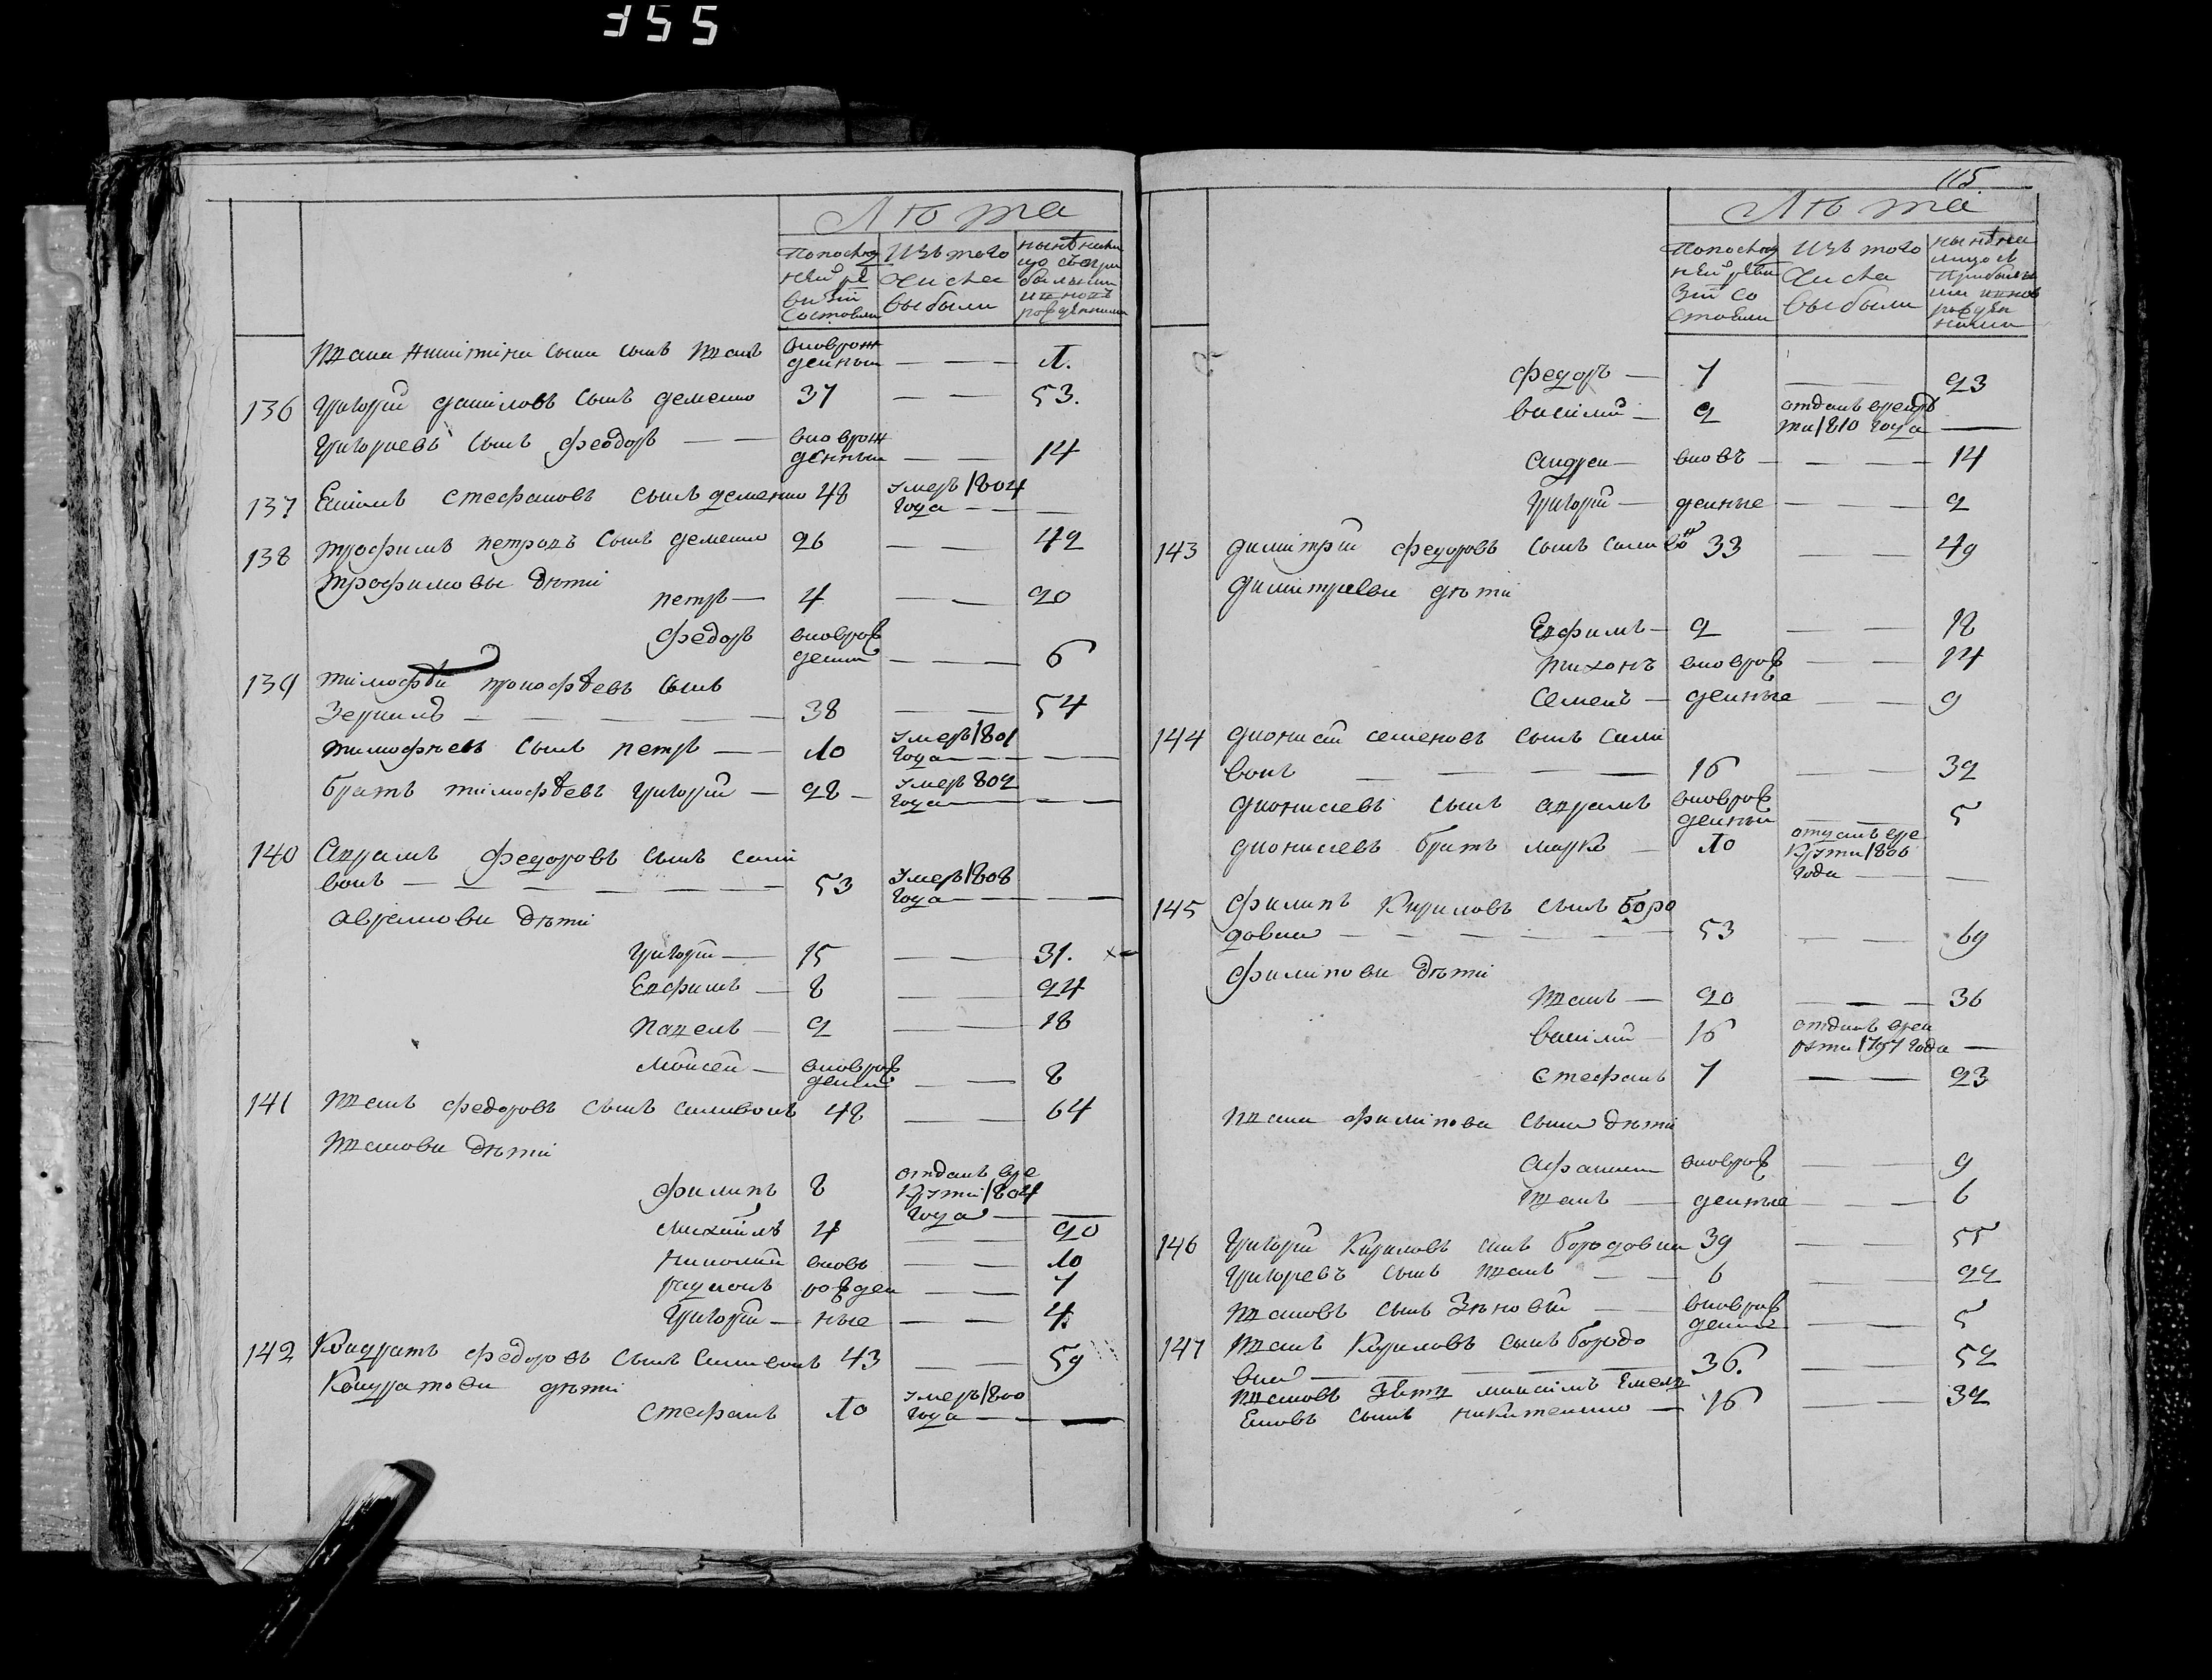 355
Лѣта
По послед
ней ре
визіи
состояли
Изъ того
числа
выбыли
ныне нали
цо съ при
былыми
и новъ
рожденными
Ивана Никитина сына сынъ Иванъ
вноврож
денный — — 1.
136 Григорий Даниловъ сынъ Деменко 37 — — 53.
Григориевъ сынъ Феодоръ — — вноврож
денныи — — 14
137 Стефановъ сынъ Деменко 48 умеръ 1804
года — —
138 Трофимъ Петровъ сынъ Деменко 26 — — 42
Трофимовы дѣти
Петръ — 4 — — 20
Федоръ вновролж
денни — — 6
139 Тимофѣй Прокофѣевъ сынъ
— — — 38 — — 54
Тимофѣевъ сынъ Петръ — — 10 умеръ 1801
года — — —
братъ Тимофѣевъ Григорий — 28 — умеръ 802
года — — —
140 Аврамъ Федоровъ сынъ Сали
вонъ — — — — — 53 умеръ 1808
года — — —
Аврамови дѣти
Григорій — 15 — — 31.
Евфимъ — 8 — — 24
Павелъ — 2 — — 18
Мойсей — вноврож
денни — — 8
141 Иванъ Федоровъ сынъ Саливонъ 48 — — 64
Ивановы дѣти
Филипъ 8 отданъ вре
круты 1804
года —
Михайлъ 4 — — 20
Николай вновь — — 10
рожден — — 7
Григорій — ные — — 4.
142 Кондратъ Федоровъ сынъ Саливонъ 43 — — 59
Кондратови дѣти
Стефанъ 10 умеръ 1800
года — — —
115.
Лѣта
По послед
ней реви
зіи со
стояли
Изъ того
числа
выбыли
ныне на
лицо съ
прибылы
ми и нов
рожден
ными
Федоръ — 7 — — 23
Василий — 2 отданъ врекру
ты 1810 года —
Андреи — вновъ — — — 14
Григорий — денные — — — 2
143 Димитрій Федоровъ сынъ Саливон 33 — — 49
Димитриеви дѣти
Евфимъ — 2 — — 18
Тихонъ вноврож — — 14
Семенъ — денные — — 9
144 Дионисій Семеновъ сынъ Сали
вонъ — — — — 16 — — 32
Дионисиевъ сынъ Аврамъ вноврож
денныи — — 5
Дионисиевъ братъ Марко — 10 отданъ вре
круты 1806
года — —
145 Филипъ Кириловъ сынъ Боро
давка — — — — — 53 — — 69
Филипови дѣти
Иванъ — 20 — — — 36
Василий — 16 отданъ врек
руты 1797 года —
Стефанъ 7 — — 23
Ивана Филипова сына дѣти
вноврож — — 9
Иванъ — денные — — 6
146 Григорій Кириловъ сынъ Бородавка 39 — — 55
Григоревъ сынъ Иванъ — — 6 — — 22
Ивановъ сынъ Зѣновій — — вноврож
денные — — 5
147 Иванъ Кириловъ сынъ Бородо
вка — — — 36. — — 52
Ивановъ зѣть Максимъ Емелья
новъ сынъ Никитенко — 16 — — 32